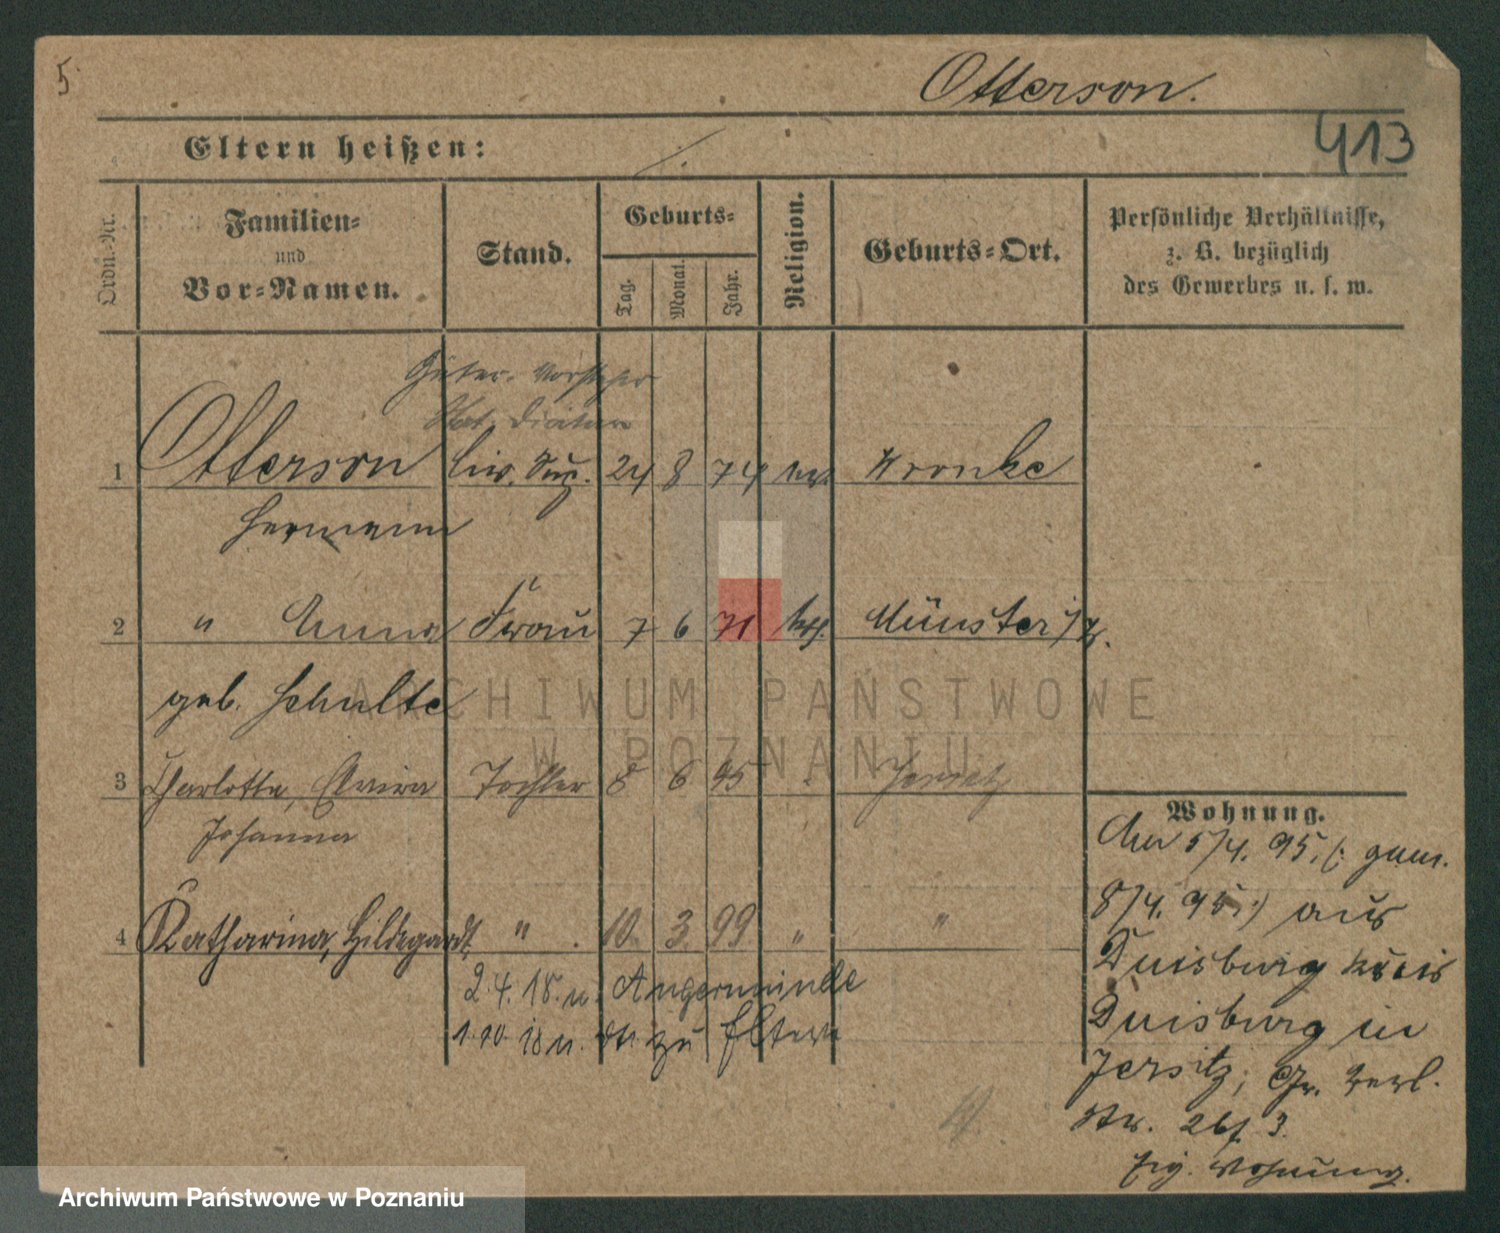 5.
Otterson.
413
Eltern heißen:
Ordn.-Nr.
Familien-
und
Vor-Namen.
Stand.
Geburts-
Tag.
Monat.
Jahr.
Religion.
Geburts-Ort.
Persönliche Verhältnisse,
z. B. bezüglich
des Gewerbes u. s. w.
Güter-Vorsteher
Stat. Diätar
1 Otterson Civ. Sup. 24 8 74 Wronke
Hermann
2 " Anna Frau 7 6 71 Münster i/W.
geb. Schulte
ARCHIWUM PAŃSTWOWE
W POZNANIU
3 Charlotte, Elvira Tochter 8 6 95 Jersitz
Johanna
4 Katharina, Hildegardt, " 10. 3. 99 " "
2.4.18. n. Angermünde
1.10.18 n. zu Eltern
Wohnung.
An 5/4. 95. (: gem.
8/4. 95 :) aus
Duisburg Kreis
Duisburg in
Jersitz, Gr. Berl.
Str. 26f 3.
Eig. Wohnung.
Archiwum Państwowe w Poznaniu